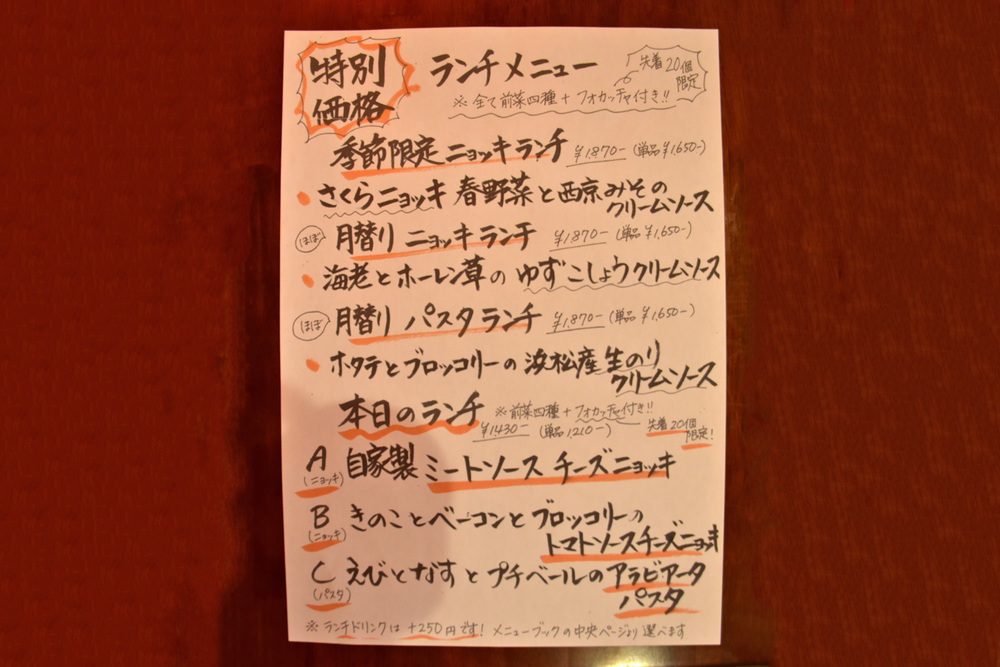 特別
価格
ランチメニュー
先着20個
限定
※全て前菜四種+フォカッチャ付き!!
季節限定ニョッキランチ ¥1,870- (単品¥1,650-)
• さくらニョッキ 春野菜と西京みその
クリームソース
ほぼ 月替り ニョッキランチ ¥1,870- (単品¥1,650-)
• 海老とホーレン草の ゆずこしょうクリームソース
ほぼ 月替り パスタランチ ¥1,870- (単品¥1,650-)
• ホタテとブロッコリーの 浜松産生のり
クリームソース
本日のランチ ※前菜四種+フォカッチャ付き!!
¥1,430- (単品1,210-) 先着20個
限定!
A 自家製 ミートソース チーズニョッキ
(ニョッキ)
B きのことベーコンと ブロッコリーの
(ニョッキ) トマトソースチーズニョッキ
C えびとなすと プチベールの アラビアータ
(パスタ) パスタ
※ ランチドリンクは +250円です! メニューブックの中央ページより選べます